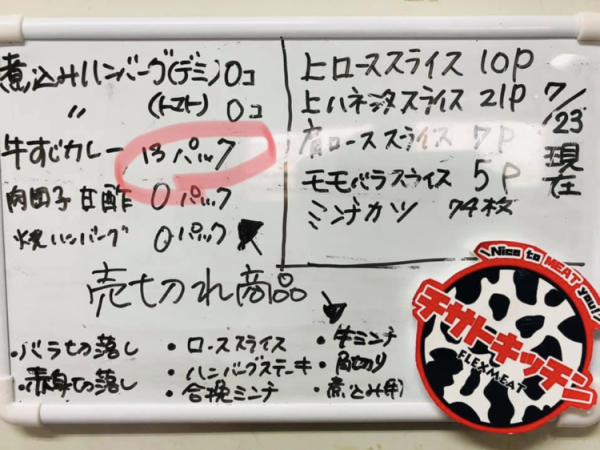 煮込みハンバーグ(デミ)0コ
〃 (トマト) 0コ
牛すじカレー 13パック
肉団子 甘酢 0パック
焼ハンバーグ 0パック
上ローススライス 10P
上ハネシタスライス 21P
肩ローススライス 7P
モモバラスライス 5P
ミンチカツ 74枚
7/23現在
売切れ商品
・バラ切り落し
・赤身切り落し
・ローススライス
・ハンバーグステーキ
・合挽ミンチ
・牛ミンチ
・角切り
・煮込み用
\Nice to MEAT you!/
チサトキッチン
FLEXMEAT